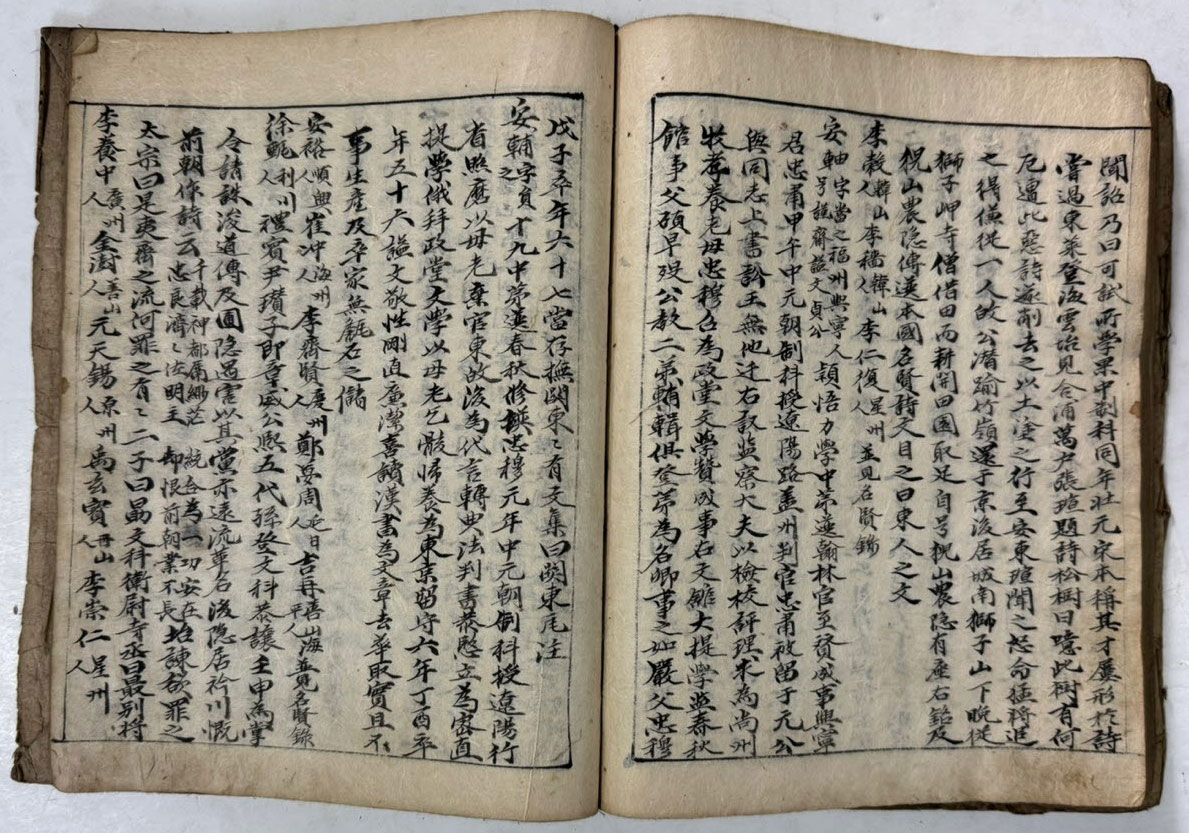 聞詔乃曰可試所學果中制科同年壯元宋本稱其才屢形於詩
嘗過東萊登海雲坮見合浦萬户張瑄題詩松樹曰噫此樹有何
厄遭此惡詩遂削去之以土塗之行至安東瑄聞之怒命猛將追
之得傔從一人故公潛踰竹嶺還于京後居城南獅子山下晩從
獅子岬寺僧借田而耕開田園取足自号猊山農隐有座右銘及
猊山農隐傳選本國名賢詩文目之曰東人之文
李糓韓山人李穡韓山人李仁復星州人並見名賢錄
安軸字當之福州興寧人号謹齋謚文貞公穎悟力學中第選翰林官至賛成事興寧
君忠甫甲午中元朝制科授遼陽路盖州判官忠甫被留于元公
與同志上書訟王無他迁右司監察大夫以檢校評理求為尚州
牧养養老母忠穆召為政堂文學賛成事右文館大提學監春秋
館事父碩早殁公教二弟輔輯俱登第為名卿事之如嚴父忠穆
戊子卒年六十七當存撫関東〻有文集曰関東尾注
安輔字員之十九中第選春秋修撰忠穆元年中元朝制科授遼陽行
省照磨以母老棄官東故後為代言轉典法判書恭愍立為密直
提學俄拜政堂文學以母老乞骸歸養為東京留守六年丁酉卒
年五十六謚文敬性剛直廉潔喜讀漢書為文章去華取實且不
事生産及卒家無甔石之儲
安裕順興人崔冲海州人李齊賢慶州人鄭夢周延日人吉再善山海平人並見名賢錄
徐甄利川人禮賓尹瓚子即章威公熙五代孫登文科恭讓壬申為掌
令請誅浚道傳及圃隐遇害以其黨亦遠流革名後隐居衿川慨
前朝作詩云千載神都隔緲茫忠良濟〻佐明主統合為一功安在却恨前朝業不長坮諫欲罪之
太宗曰是夷齊之流何罪之有〻二子曰晶文科衛尉寺丞曰最别将
李養中廣州人金澍善山人元天錫原州人禹玄寳丹山人李崇仁星州人